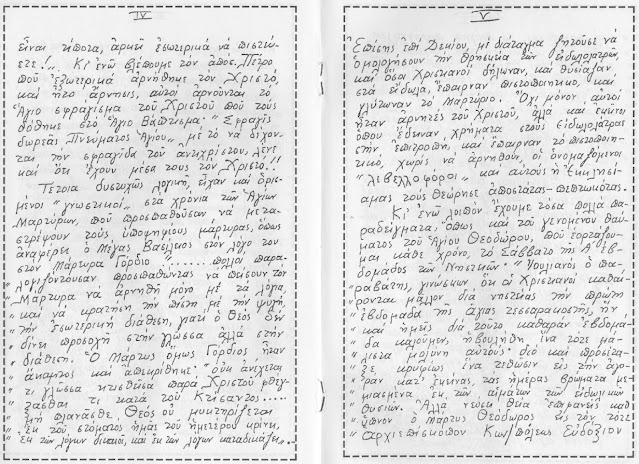 IV
εἶναι τίποτα, ἀρκεῖ ἐσωτερικά νά πιστεύ-
ετε!... Κι' ἐνῶ βλέπουμε τόν ἀπόσ. Πέτρο
πού ἐξωτερικά ἀρνήθηκε τόν Χριστό,
καί ἦτο ἄρνησις, αὐτοί ἀρνοῦνται τό
Ἅγιο σφράγισμα τοῦ Χριστοῦ πού τούς
δόθηκε στό Ἅγιο Βάπτισμα· "Σφραγίς
δωρεᾶς Πνεύματος Ἁγίου" μέ τό νά δέχον-
ται τήν σφραγίδα τοῦ ἀντιχρίστου, λένε
καί ὅτι ἔχουν μέσα τους τόν Χριστό!!
Τέτοια δυστυχῶς λογική, εἶχαν καί ὁρισ-
μένοι "γνωστικοί" στά χρόνια τῶν Ἁγίων
Μαρτύρων, πού προσπαθοῦσαν νά μετα-
στρέψουν τούς ὑποψηφίους μάρτυρας, ὅπως
ἀναφέρει ὁ Μέγας Βασίλειος στόν λόγο του
στόν Μάρτυρα Γόρδιο "......πολλοί παρα-
λογίζοντουσαν προσπαθώντας νά πείσουν τόν
"Μάρτυρα νά ἀρνηθῆ μόνο μέ τά λόγια,
"καί νά κρατήση τήν πίστη μέ τήν ψυχή,
"τήν ἐσωτερική διάθεση, γιατί ὁ Θεός δέν
"δίνει προσοχή στήν γλῶσσα ἀλλά στήν
"διάθεση. Ὁ Μάρτυς ὅμως Γόρδιος ἦταν
"ἄκαμπτος καί ἀπεκρίθηκε· "οὐκ ἀνέχεται
"ἡ γλῶσσα κτισθεῖσα παρά Χριστοῦ φθέγ-
"ξασθαί τι κατά τοῦ Κτίσαντος....
"μή πλανᾶσθε, Θεός οὐ μυκτηρίζεται
"ἐκ τοῦ στόματος ἡμᾶς τοῦ ἡμετέρου κρίνει,
"ἐκ τῶν λόγων δικαιοῖ, καί ἐκ τῶν λόγων καταδικάζει..
V
Ἐπίσης ἐπί Δεκίου, μέ διάταγμα ζητοῦσε νά
ὁμολογήσουν τήν θρησκεία τῶν εἰδωλολατρῶν,
καί ὅσοι Χριστιανοί δήλωναν, καί θυσίαζαν
στά εἴδωλα, ἔπαιρναν πιστοποιητικό, καί
γλύτωναν τό Μαρτύριο. Ὄχι μόνον αὐτοί
ἦταν ἀρνητές τοῦ Χριστοῦ, ἀλλά καί ἐκεῖνοι
ὅπου ἔδιναν χρήματα στούς εἰδωλολάτρας
στήν ἐπιτροπή, καί ἔπαιρναν τό πιστοποιη-
τικό, χωρίς νά ἀρνηθοῦν, οἱ ὀνομαζόμενοι
"λιβελλοφόροι" καί αὐτούς ἡ Ἐκκλησί-
α μας τούς θεώρησε ἀποστάτας-πεπτωκότας.
Κι' ἐνῶ λοιπόν ἔχουμε τόσα πολλά πα-
ραδείγματα, ὅπως καί τοῦ γενομένου θαύ-
ματος τοῦ Ἁγίου Θεοδώρου, πού ἑορτάζου-
με κάθε χρόνο, τό Σάββατο τῆς Α' ἑβ-
δομάδος τῶν Νηστειῶν· "Ἰουλιανός ὁ πα-
"ραβάτης, γινώσκων ὅτι οἱ Χριστιανοί καθαί-
"ρονται μᾶλλον διά νηστείας τήν πρώτη
"ἑβδομάδα τῆς ἁγίας τεσσαρακοστῆς, ἥν
"καί ἡμεῖς διά τοῦτο καθαράν ἑβδομά-
"δα καλοῦμεν, ἠβουλήθη ἵνα τότε μά-
"λιστα μολύνη αὐτούς· διό καί προσέτα-
"ξε κρυφίως ἵνα τεθῶσιν εἰς τήν ἀγο-
"ράν κατ' ἐκείνας τάς ἡμέρας βρώματα με-
"μιασμένα ἐκ τῶν αἱμάτων τῶν εἰδωλικῶν
"θυσιῶν. Ἀλλά νεύσει θεία ἐπιφανείς καθ'
"ὕπνον ὁ Μάρτυς Θεόδωρος εἰς τόν τότε
"ἀρχιεπίσκοπον Κων/πόλεως Εὐδόξιον